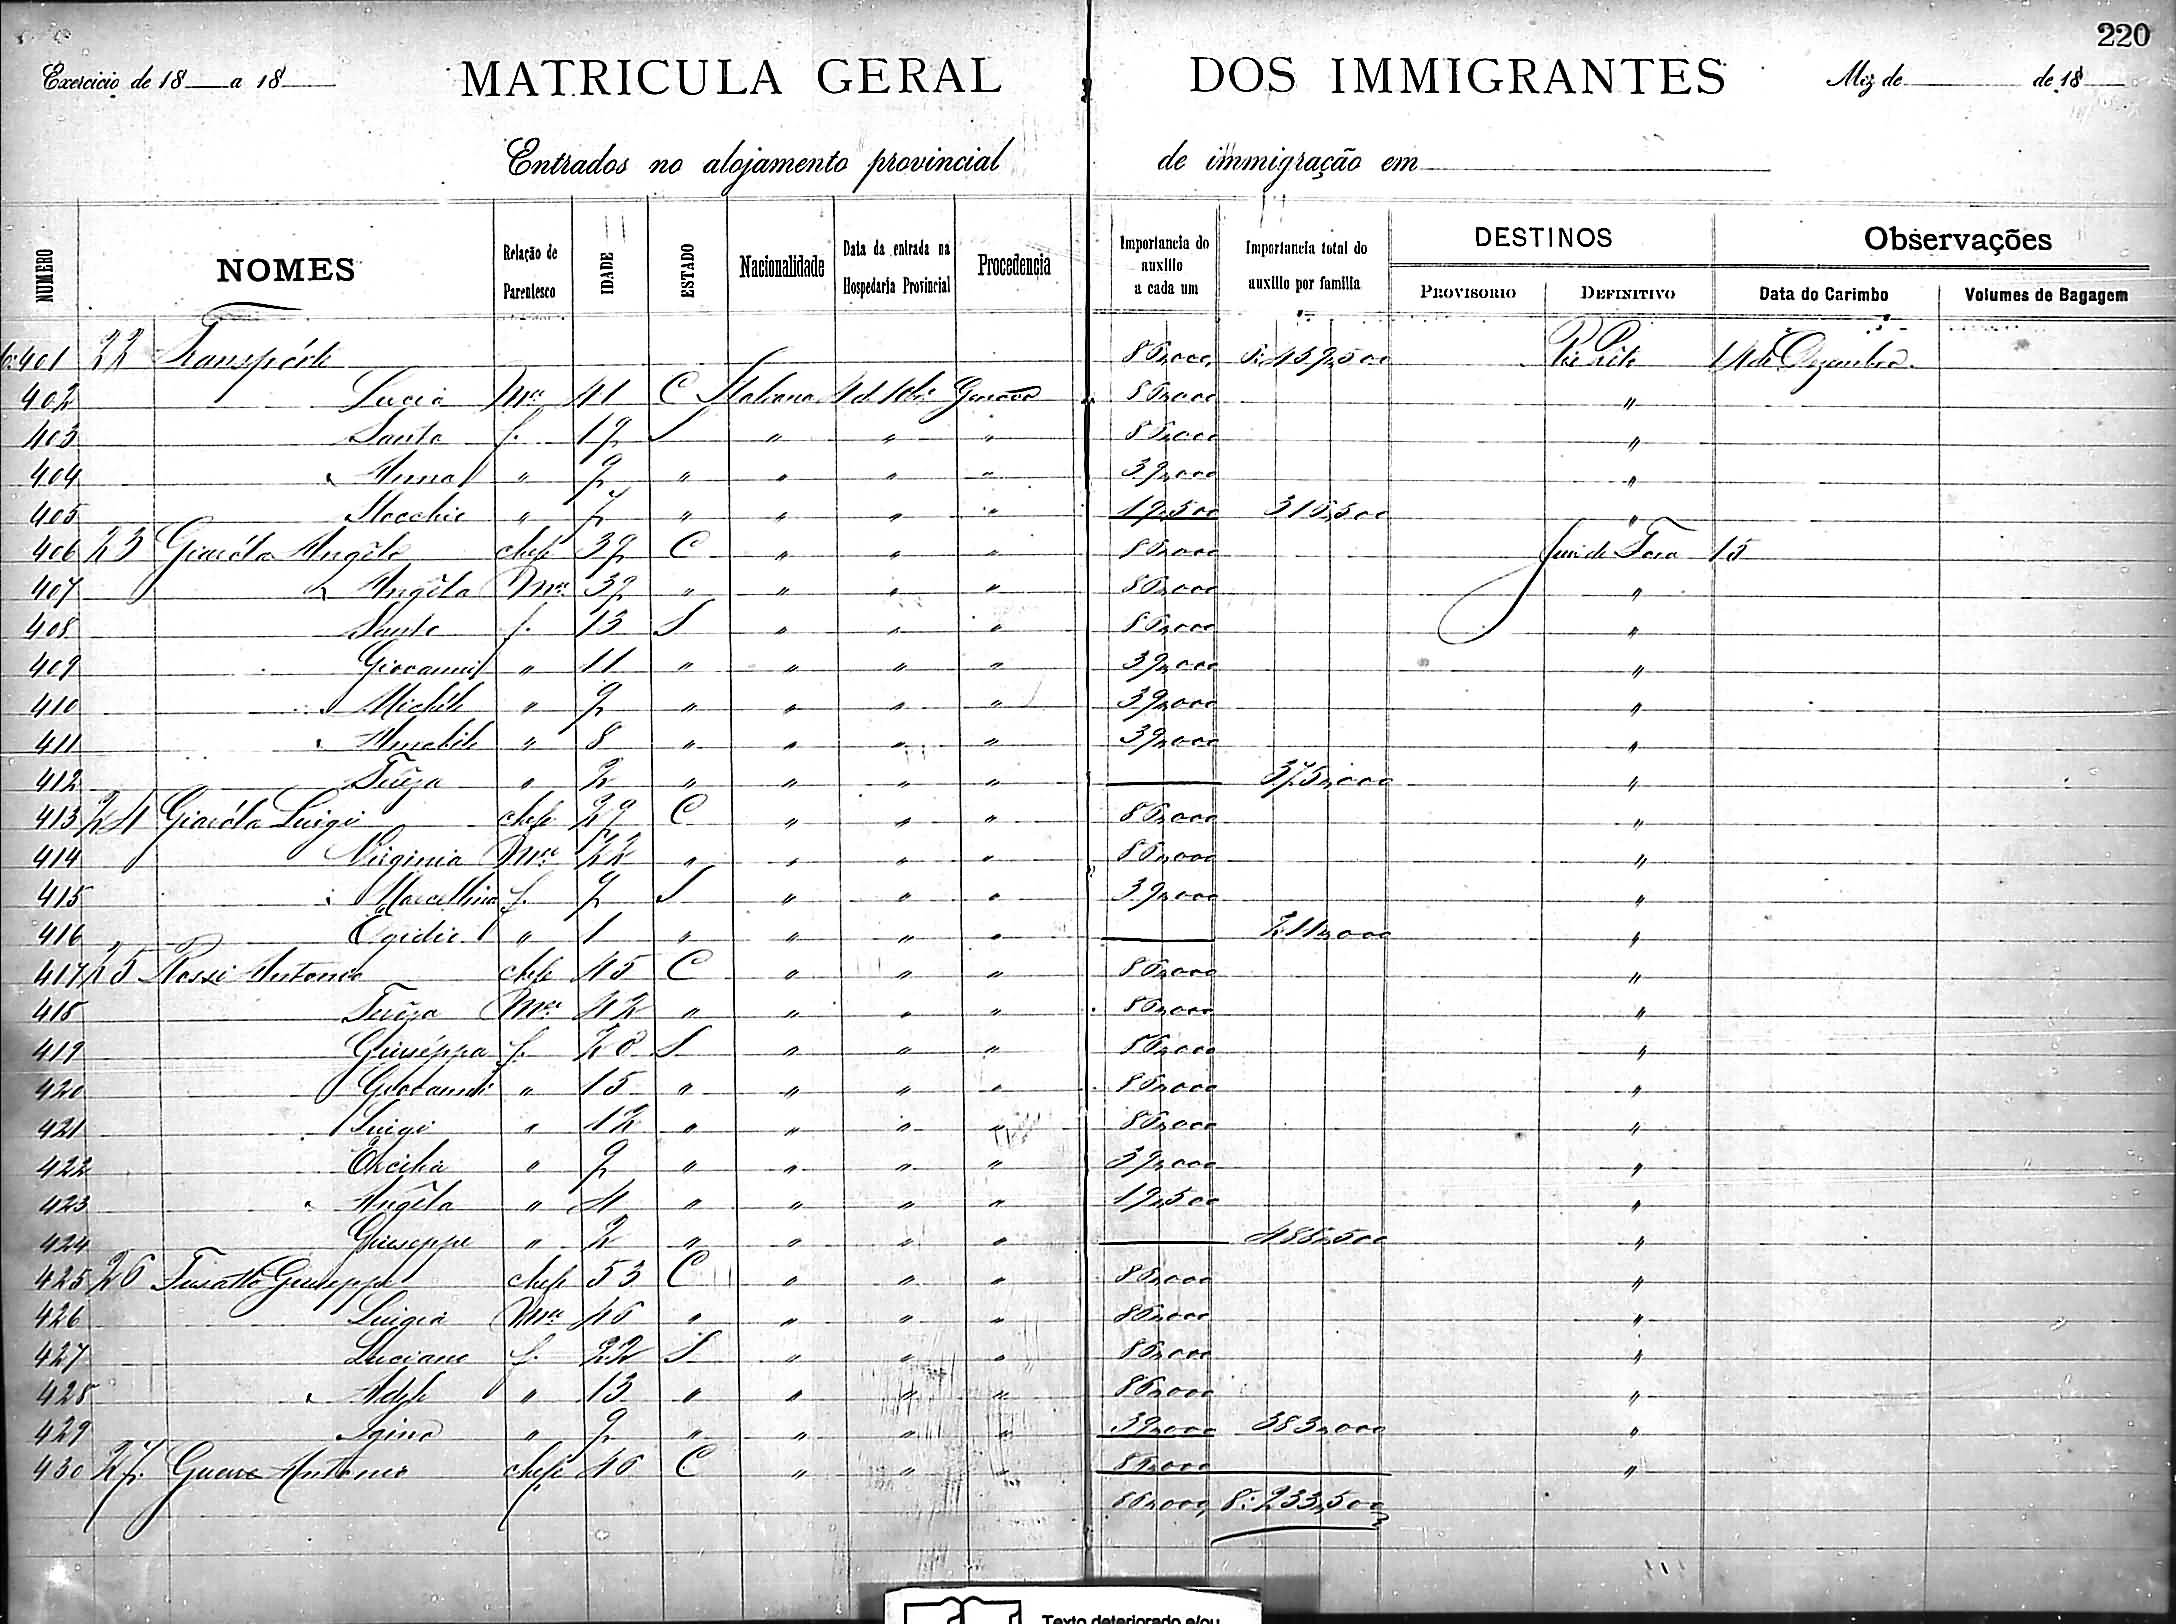 220
Exercicio de 18 a 18 MATRICULA GERAL DOS IMMIGRANTES Mez de de 18
Entrados no alojamento provincial de immigração em
NUMERO NOMES Relação de Parentesco IDADE ESTADO Nacionalidade Data da entrada na Hospedaria Provincial Procedencia Importancia do auxilio a cada um Importancia total do auxilio por familia DESTINOS PROVISORIO DEFINITIVO Observações Data do Carimbo Volumes de Bagagem
401 22 Transpórte 86,000 14 de Dezembro
402 Lucia Mer 41 C Italiana Genova 86,000 "
403 Santa f. 19 S " " " 86,000 "
404 Anna " 9 " " " " 39,000 "
405 " 7 " " " " 19,500 316,500 "
406 23 Giaróla Angélo chefe 39 C " " " 86,000 Juiz de Fora 15
407 Angéla Mer 39 " " " " 86,000 "
408 Santo f. 13 S " " " 86,000 "
409 Giovanni " 11 " " " " 39,000 "
410 Michéle " 9 " " " " 39,000 "
411 " 8 " " " " 39,000 "
412 Teréza " 2 " " " " 375,000 "
413 24 Giaróla Luigi chefe 29 C " " " 86,000 "
414 Virginia Mer 22 " " " " 86,000 "
415 Marcellina f. 9 S " " " 39,000 "
416 Egidio " 1 " " " " 211,000 "
417 25 Rossi Antonio chefe 45 C " " " 86,000 "
418 Teréza Mer 42 " " " " 86,000 "
419 Giuséppa f. 20 S " " " 86,000 "
420 Giovanni " 15 " " " " 86,000 "
421 Luigi " 12 " " " " 86,000 "
422 " 9 " " " " 39,000 "
423 Angéla " 4 " " " " 19,500 "
424 Giuseppe " 2 " " " " 488,500 "
425 26 Giuseppe chefe 53 C " " " 86,000 "
426 Luigia Mer 46 " " " " 86,000 "
427 Luciano f. 22 S " " " 86,000 "
428 Adele " 13 " " " " 86,000 "
429 " 9 " " " " 39,000 383,000 "
430 27 Antonio chefe 46 C " " " 86,000 "
86,000 8:233,500
Texto deteriorado e/ou